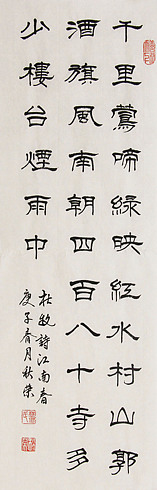 千里鶯啼綠映紅水村山郭
酒旗風南朝四百八十寺多
少樓台煙雨中
杜牧詩江南春
庚子春月秋荣